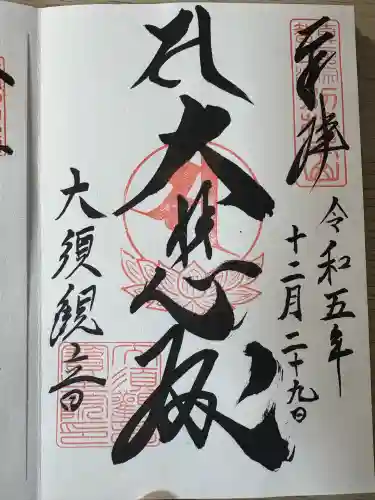 奉拝
令和五年
十二月二十九日
大悲殿
大須観音